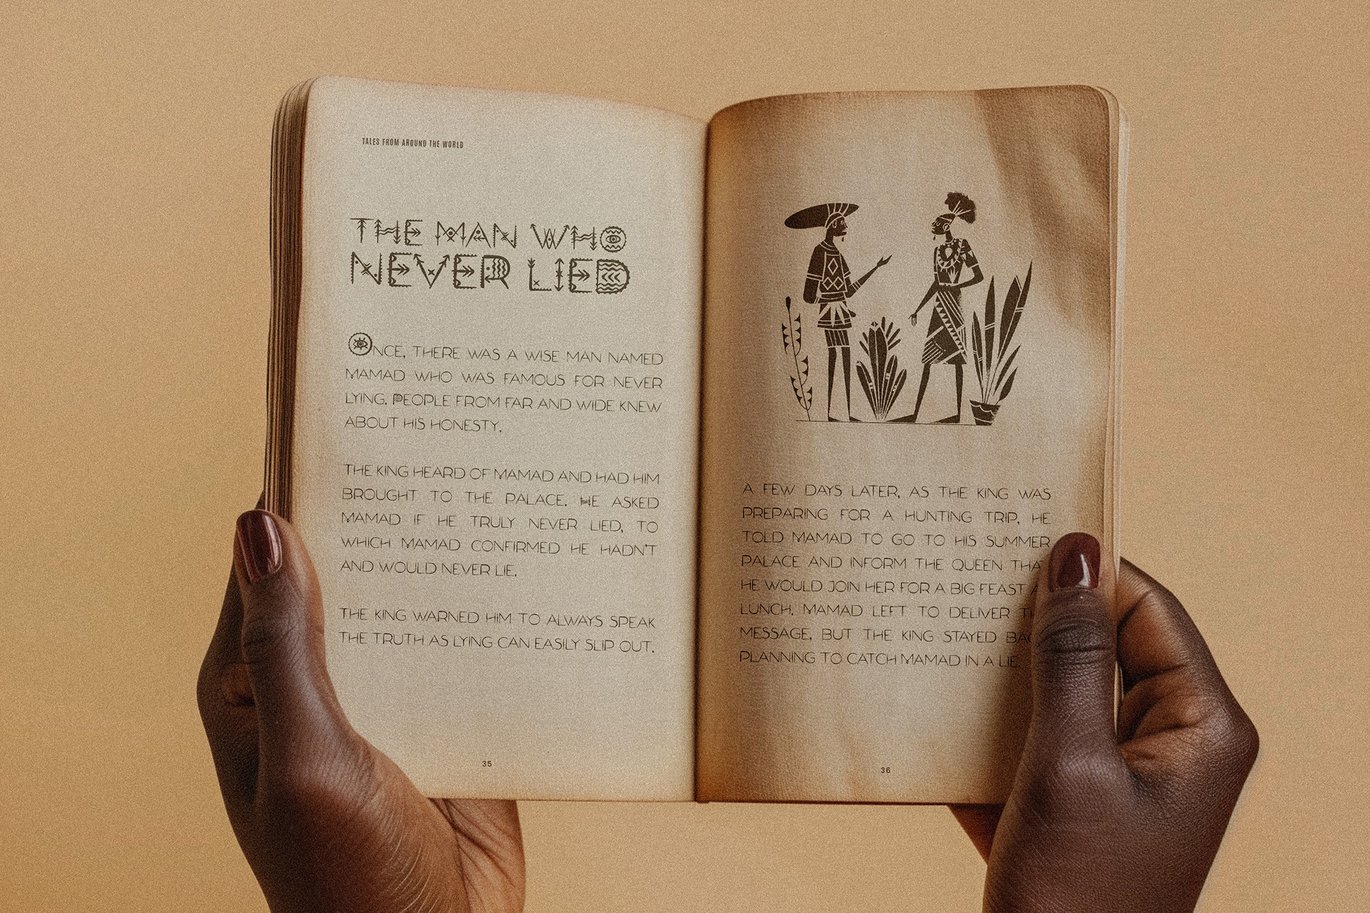 TALES FROM AROUND THE WORLD
THE MAN WHO
NEVER LIED
ONCE, THERE WAS A WISE MAN NAMED
MAMAD WHO WAS FAMOUS FOR NEVER
LYING. PEOPLE FROM FAR AND WIDE KNEW
ABOUT HIS HONESTY.
THE KING HEARD OF MAMAD AND HAD HIM
BROUGHT TO THE PALACE. HE ASKED
MAMAD IF HE TRULY NEVER LIED, TO
WHICH MAMAD CONFIRMED HE HADN'T
AND WOULD NEVER LIE.
THE KING WARNED HIM TO ALWAYS SPEAK
THE TRUTH AS LYING CAN EASILY SLIP OUT.
35
A FEW DAYS LATER, AS THE KING WAS
PREPARING FOR A HUNTING TRIP, HE
TOLD MAMAD TO GO TO HIS SUMMER
PALACE AND INFORM THE QUEEN
HE WOULD JOIN HER FOR A BIG FEAST
LUNCH. MAMAD LEFT TO DELIVER
MESSAGE, BUT THE KING STAYED
PLANNING TO CATCH MAMAD IN A LIE.
36